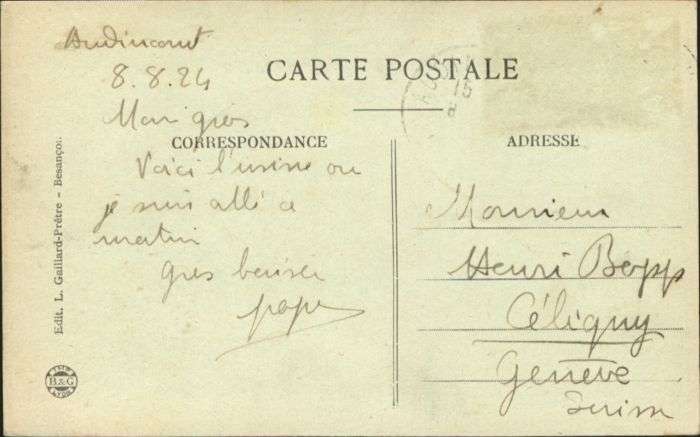 Audincourt
8.8.24
CARTE POSTALE
Mon gros
CORRESPONDANCE
Voici l'usine ou
je suis allé ce
matin
gros baiser
papa
ADRESSE
Monsieur
Henri Bopp
Céligny
Genève
Suisse
Edit. L. Gaillard-Prêtre - Besançon
B&G
LYON